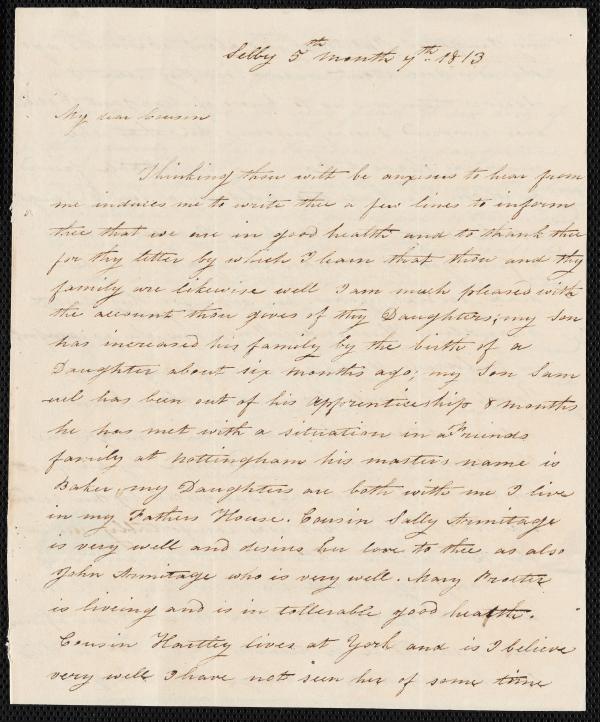 Selby 5th month 7th. 1813
My dear Cousin
Thinking thou wilt be anxious to hear from
me induces me to write thee a few lines to inform
thee that we are in good health and to thank thee
for thy letter by which I learn that thou and thy
family are likewise well I am much pleased with
the account thou gives of thy Daughters; my Son
has increased his family by the birth of a
Daughter about six months ago; my Son Sam
-uel has been out of his apprenticeship 8 months
he has met with a situation in a Friends
family at Nottingham his masters name is
Baker, my Daughters are both with me I live
in my Fathers House. Cousin Sally Armitage
is very well and desires her love to thee as also
John Armitage who is very well. Mary Procter
is liveing and is in tollerable good health.
Cousin Hartley lives at York and is I believe
very well I have not seen her of some time